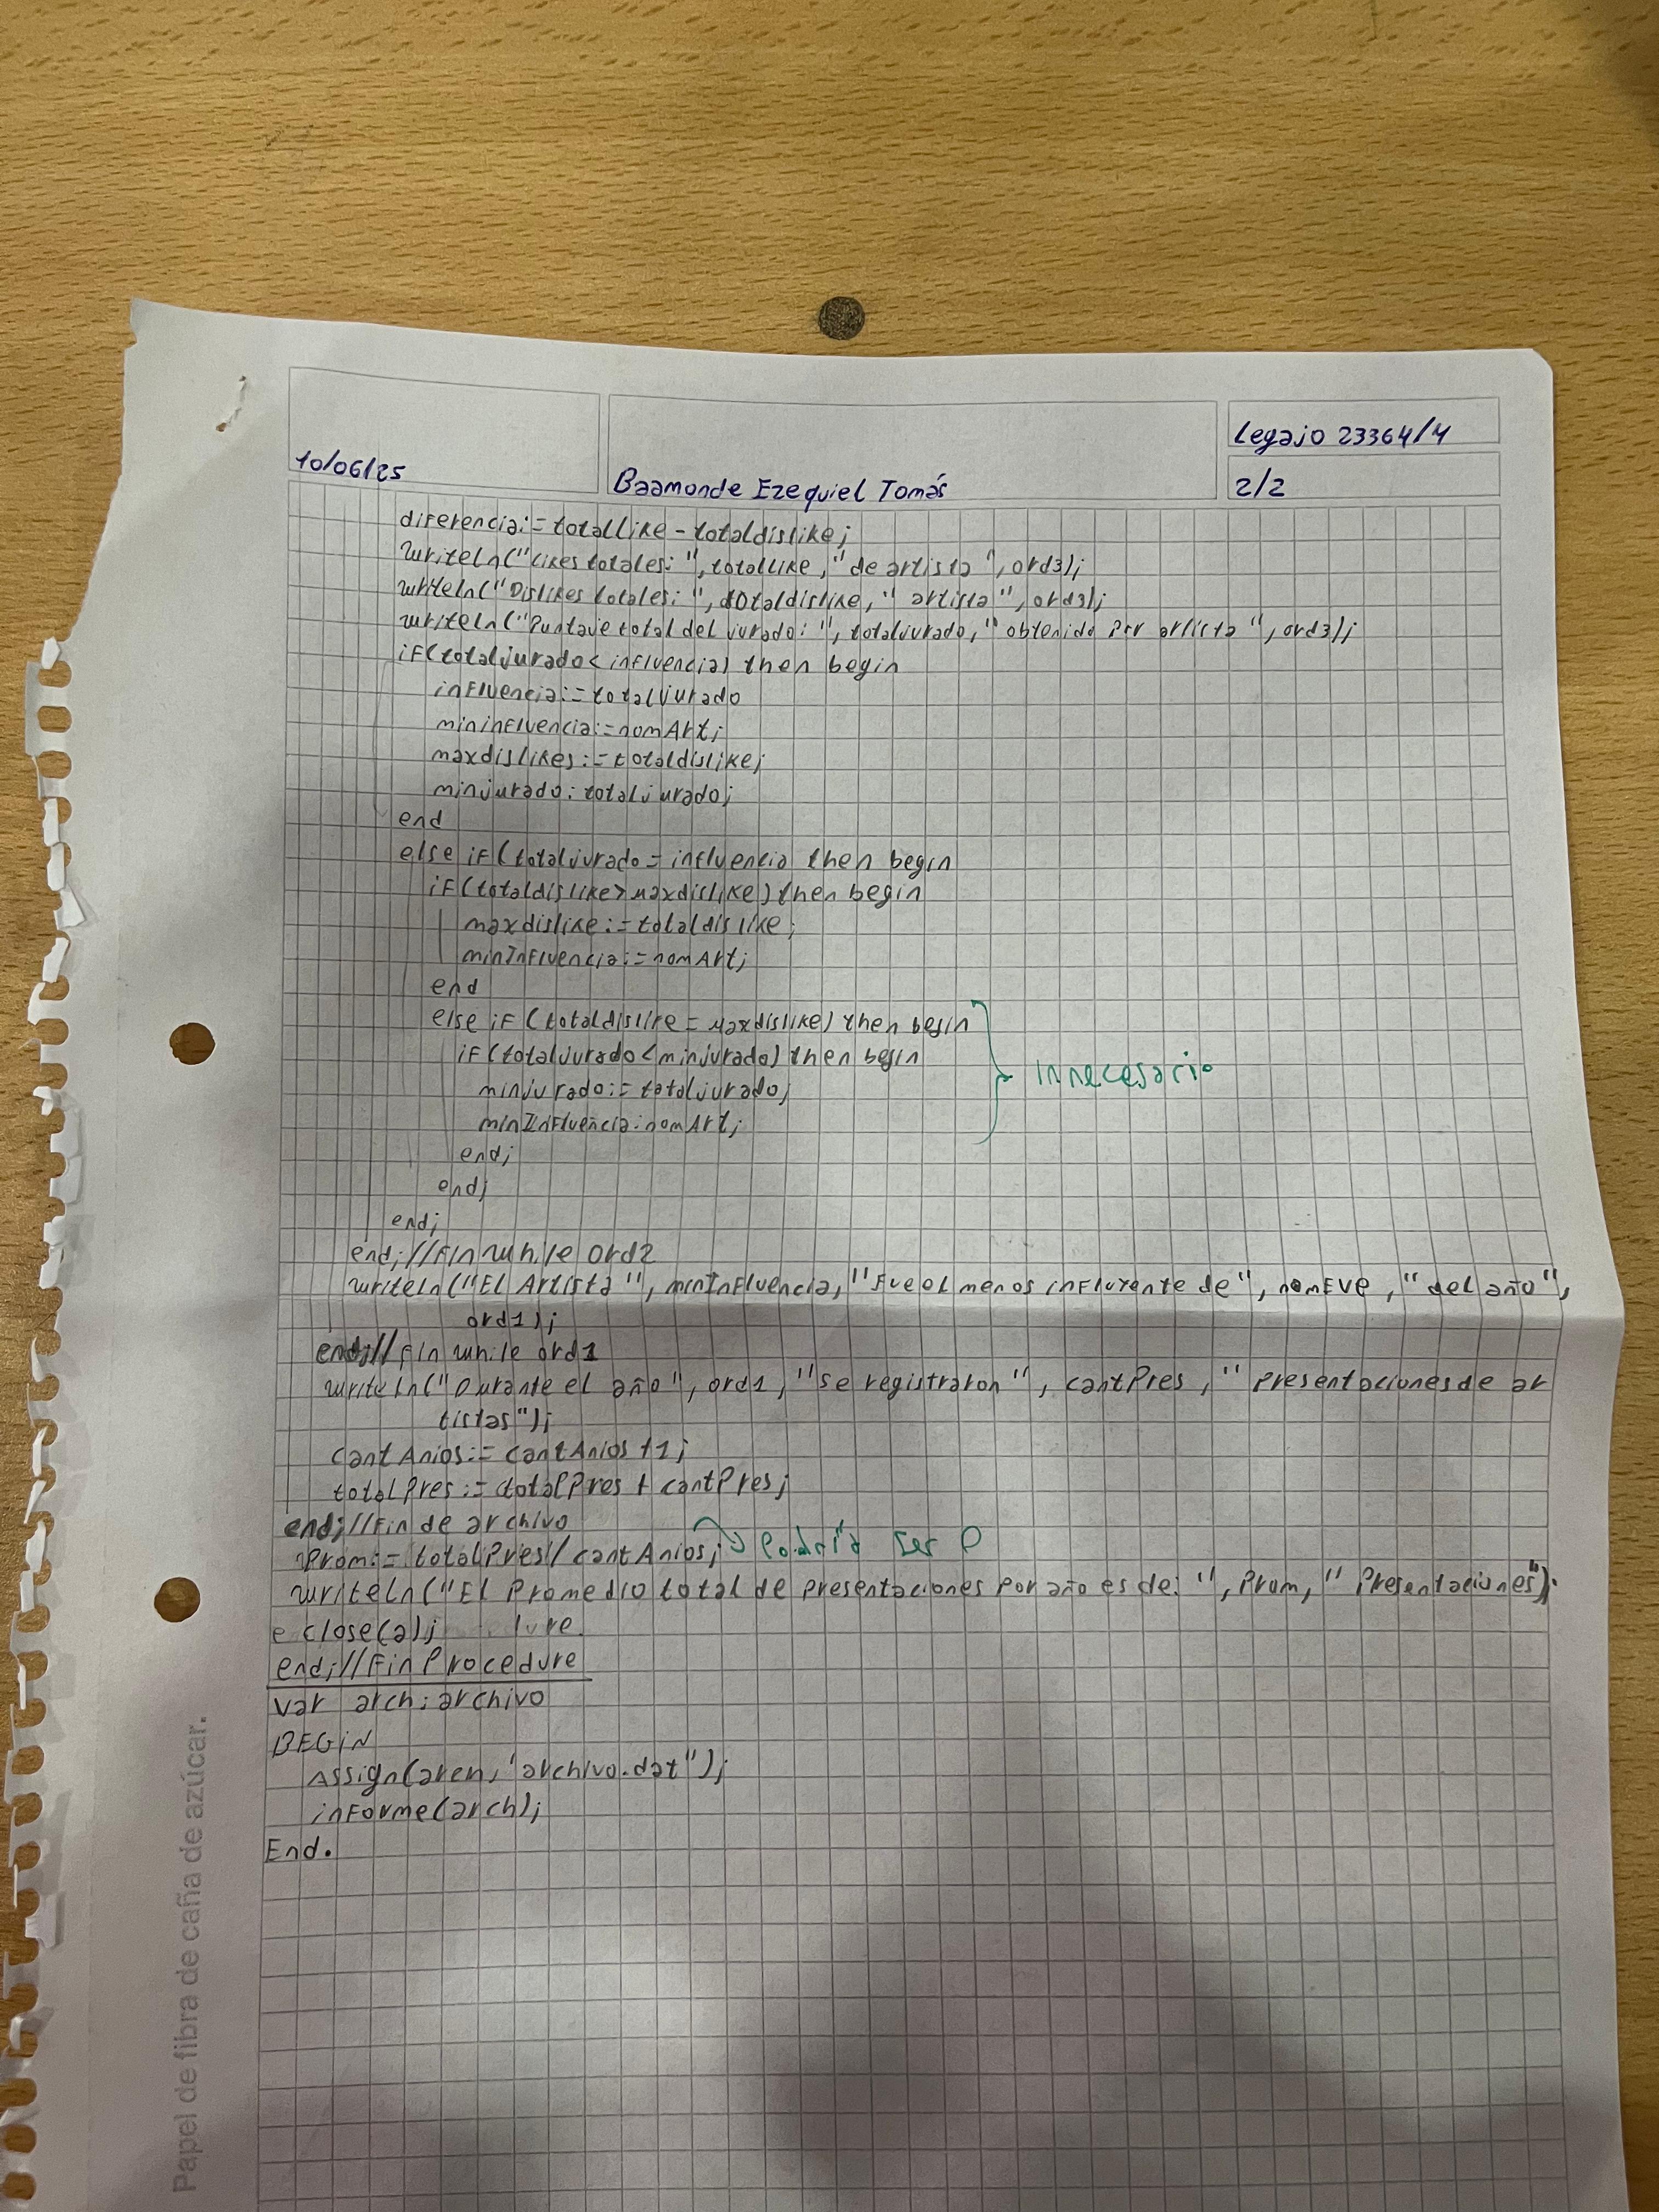 10/06/25
Baamonde Ezequiel Tomás
Legajo 23364/4
2/2
diferencia:=totalLike-totaldislike;
writeln("Likes totales: ",totalLike,"de artista",ord3);
writeln("Dislikes totales:",totaldislike," artista",ord3);
writeln("Puntaje total del jurado: ",totaljurado," obtenido por artista",ord3);
if(totaljurado<influencia) then begin
influencia:=totaljurado
mininfluencia:=nomArt;
maxdislikes:=totaldislike;
minjurado:totaljurado;
end
else if(totaljurado=influencia then begin
if(totaldislike>maxdislike) then begin
maxdislike:=totaldislike;
minInfluencia:=nomArt;
end
else if (totaldislike=maxdislike) then begin
if(totaljurado<minjurado) then begin
innecesario
minjurado:=totaljurado;
minInfluencia:nomArt;
end;
end;
end;
end;//Fin while ord2
writeln("El Artista", minInfluencia,"fue el menos influyente de", nomEve,"del año",
ord1);
end;//fin while ord1
writeln("Durante el año",ord1,"se registraron",cantPres," presentaciones de ar
tistas");
cantAnios:=cantAnios+1;
totalPres:=totalPres+cantPres;
end;//Fin de archivo
Prom:=totalPres/cantAnios; → Podría ser 0
writeln("El Promedio total de presentaciones por año es de: ",Prom," Presentaciones");
close(a);
end;//Fin Procedure
var arch:archivo
BEGIN
Assign(arch,'archivo.dat");
informe(arch);
End.
Papel de fibra de caña de azúcar.